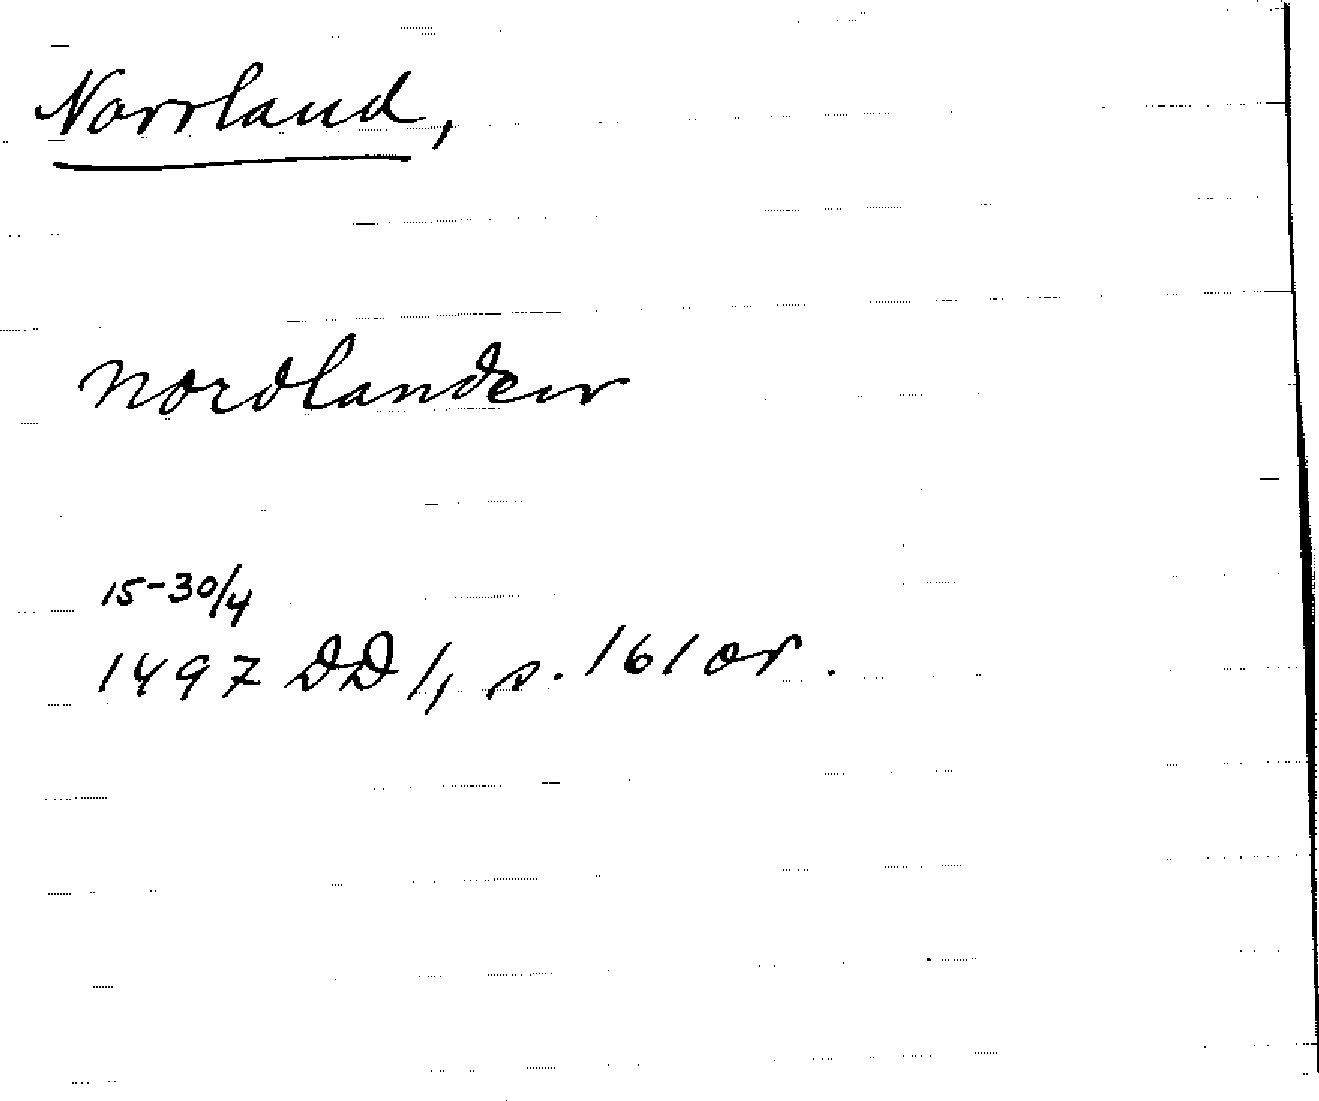 Norrland,
nordlanden
15-30/4
1497 DD 1, s. 161 or.